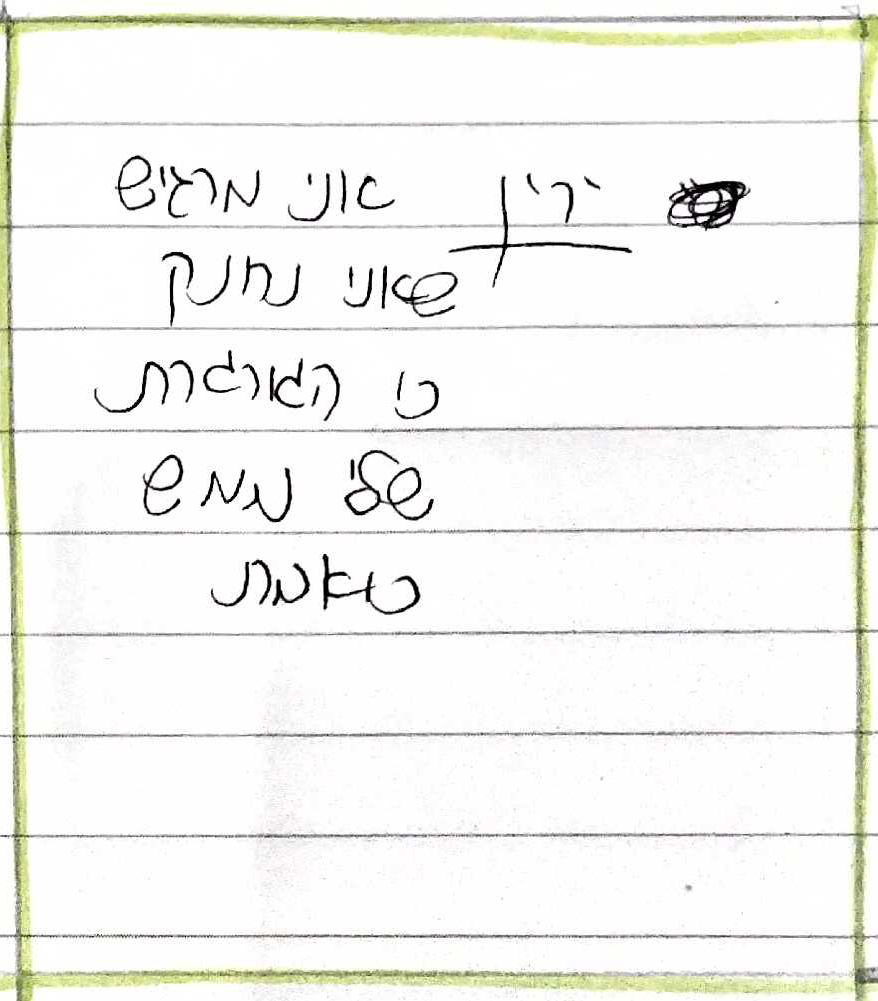 ירין אני מרגיש
שאני נחנק
כי הגורגרת
שלי ממש
כואבת